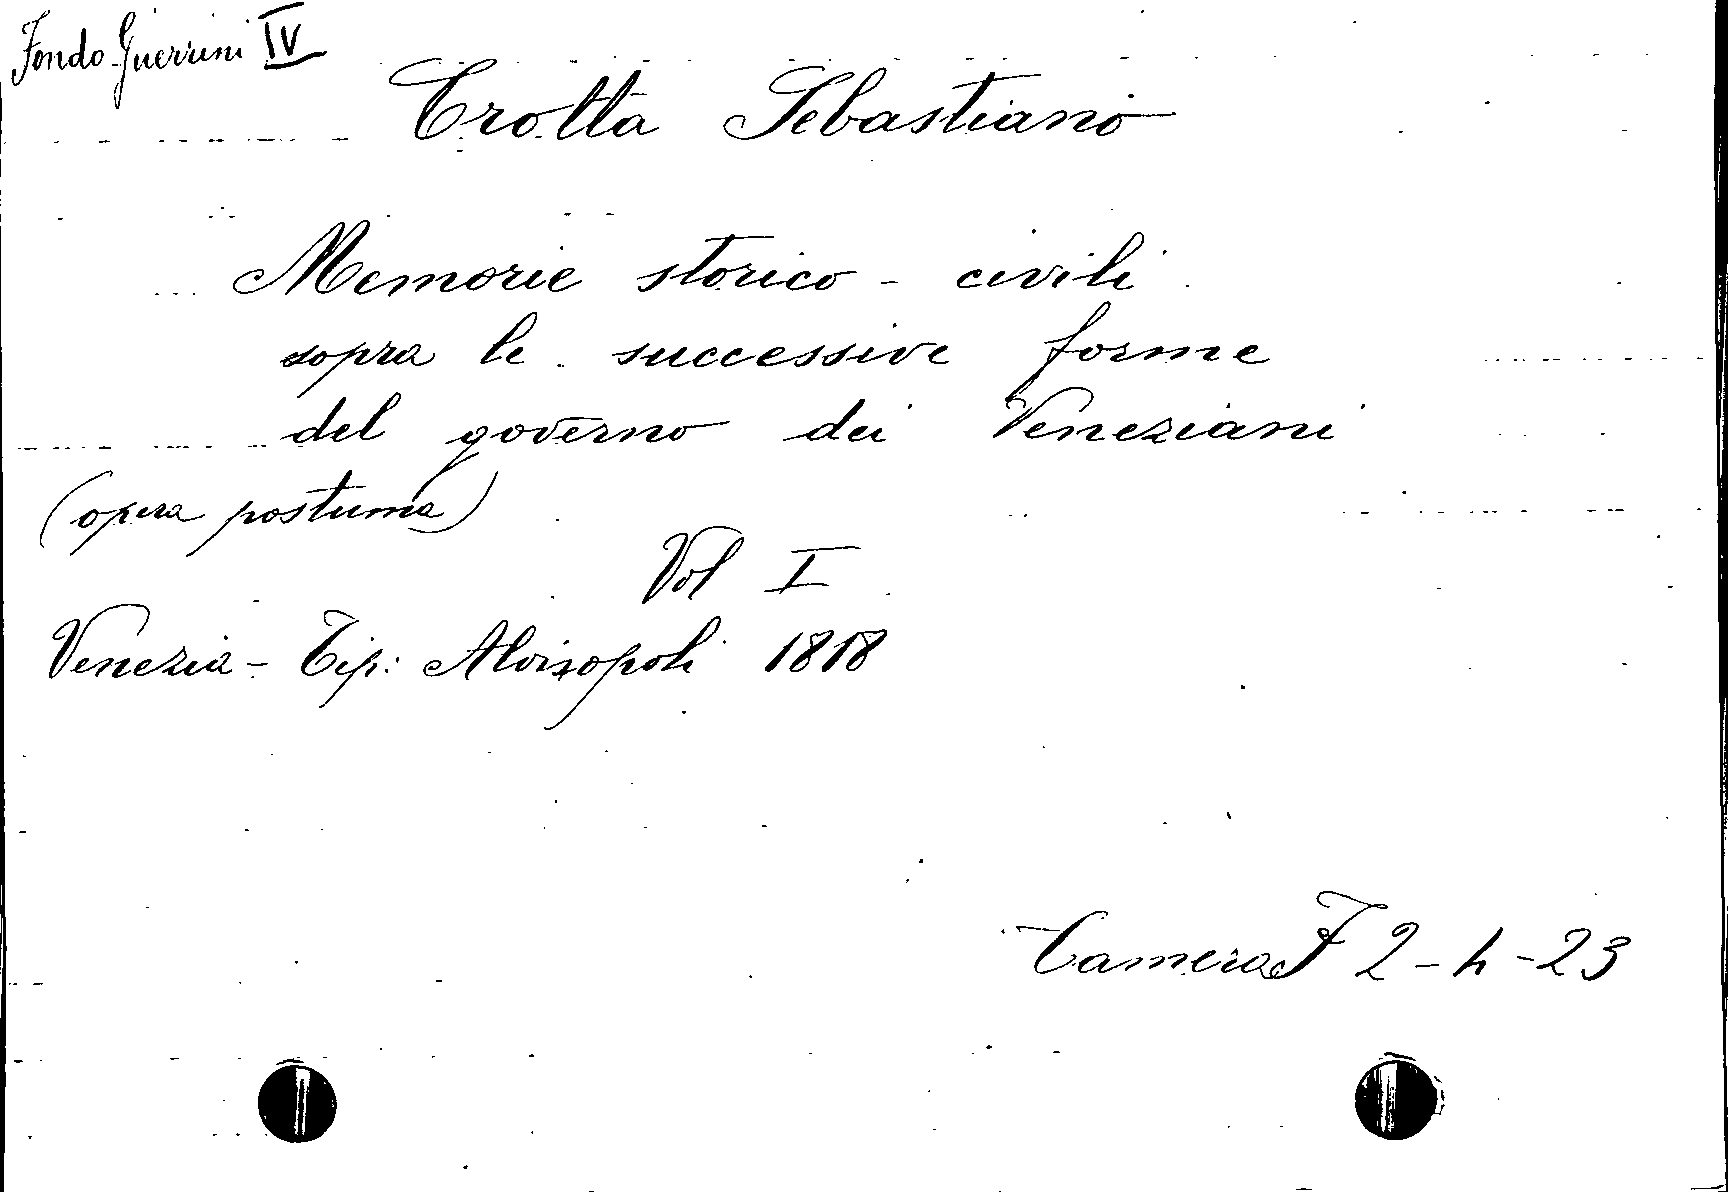 Fondo Guerrini IV
Crotta Sebastiano
Memorie storico - civili
sopra le successive forme
del governo dei Veneziani
(opera postuma)
Vol I
Venezia - Tip: Alvisopoli 1818
Camera F 2 - h - 23